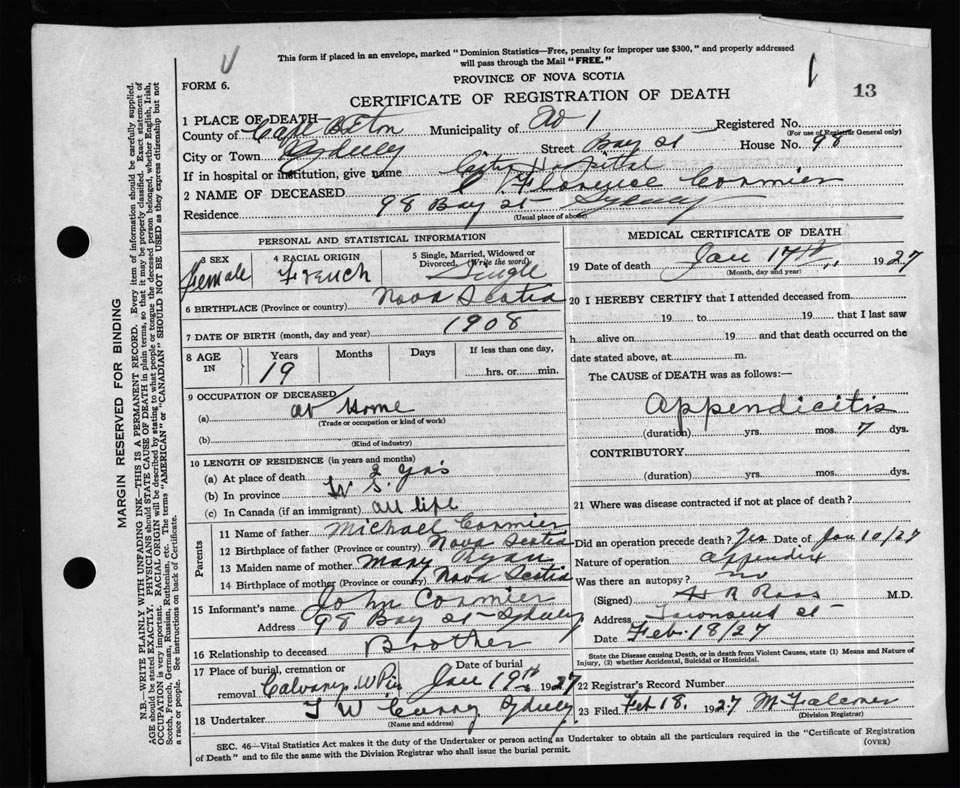 This form if placed in an envelope, marked "Dominion Statistics—Free, penalty for improper use $300," and properly addressed
will pass through the Mail "FREE."
PROVINCE OF NOVA SCOTIA
FORM 6.
CERTIFICATE OF REGISTRATION OF DEATH
13
1 PLACE OF DEATH—
County of Cape Breton Municipality of W 1 Registered No.
(For use of Registrar General only)
City or Town Sydney Street Bay St House No. 98
If in hospital or institution, give name City Hospital
2 NAME OF DECEASED Florence Cormier
Residence 98 Bay St Sydney
(Usual place of abode)
PERSONAL AND STATISTICAL INFORMATION
3 SEX Female
4 RACIAL ORIGIN French
5 Single, Married, Widowed or Divorced (Write the word) Single
6 BIRTHPLACE (Province or country) Nova Scotia
7 DATE OF BIRTH (month, day and year) 1908
8 AGE IN Years 19 Months Days If less than one day, hrs. or min.
9 OCCUPATION OF DECEASED
(a) at Home
(Trade or occupation or kind of work)
(b)
(Kind of industry)
10 LENGTH OF RESIDENCE (in years and months)
(a) At place of death 2 yrs
(b) In province
(c) In Canada (if an immigrant) all life
Parents
11 Name of father Michael Cormier
12 Birthplace of father (Province or country) Nova Scotia
13 Maiden name of mother Mary Ryan
14 Birthplace of mother (Province or country) Nova Scotia
15 Informant's name John Cormier
Address 98 Bay St Sydney
16 Relationship to deceased Brother
17 Place of burial, cremation or removal Calvary Date of burial Jan 19th 1927
18 Undertaker T W Curry Sydney
(Name and address)
MEDICAL CERTIFICATE OF DEATH
19 Date of death Jan 17th 1927
(Month, day and year)
20 I HEREBY CERTIFY that I attended deceased from
19 to 19 that I last saw
h alive on 19 and that death occurred on the
date stated above, at m.
The CAUSE OF DEATH was as follows:—
Appendicitis
(duration) yrs. mos. 7 dys.
CONTRIBUTORY
(duration) yrs. mos. dys.
21 Where was disease contracted if not at place of death?
Did an operation precede death? Yes Date of Jan 10/27
Nature of operation appendix
Was there an autopsy? no
(Signed) H R Ross M.D.
Address Townsend St
Date Feb. 18/27
State the Disease causing Death, or in death from Violent Causes, state (1) Means and Nature of
Injury, (2) whether Accidental, Suicidal or Homicidal.
22 Registrar's Record Number
23 Filed Feb 18, 1927 M Falconer
(Division Registrar)
SEC. 46—Vital Statistics Act makes it the duty of the Undertaker or person acting as Undertaker to obtain all the particulars required in the "Certificate of Registration
of Death" and to file the same with the Division Registrar who shall issue the burial permit.
(OVER)
MARGIN RESERVED FOR BINDING
N.B.—WRITE PLAINLY WITH UNFADING INK—THIS IS A PERMANENT RECORD. Every item of information should be carefully supplied.
AGE should be stated EXACTLY. PHYSICIANS should STATE CAUSE OF DEATH in plain terms, so that it may be properly classified. Exact statement of
OCCUPATION is very important. RACIAL ORIGIN will be described by stating to what people or tongue the deceased person belonged, whether English, Irish,
Scotch, French, German, Russian, Ruthenian, etc. The terms "AMERICAN" or "CANADIAN" SHOULD NOT BE USED as they express citizenship but not
a race or people. See instructions on back of Certificate.